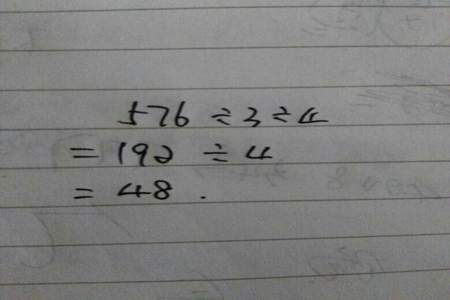 576 ÷ 3 ÷ 4
= 192 ÷ 4
= 48 .